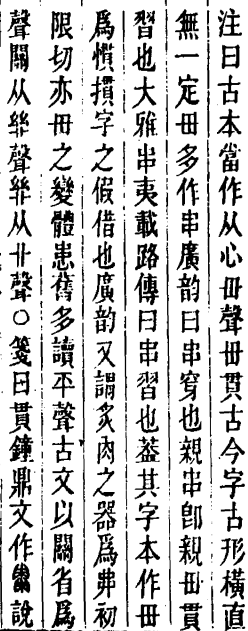 注曰古本當作从心毌聲毌貫古今字古形橫直
無一定毌多作串廣韵曰串穿也親串卽親毌貫
習也大雅串夷載路傳曰串習也葢其字本作毌
爲慣摜字之假借也廣韵又謂炙肉之器爲弗初
限切亦毌之變體患舊多讀平聲古文以關省爲
聲關从𢇇聲𢇇从丱聲○箋曰貫鐘鼎文作說